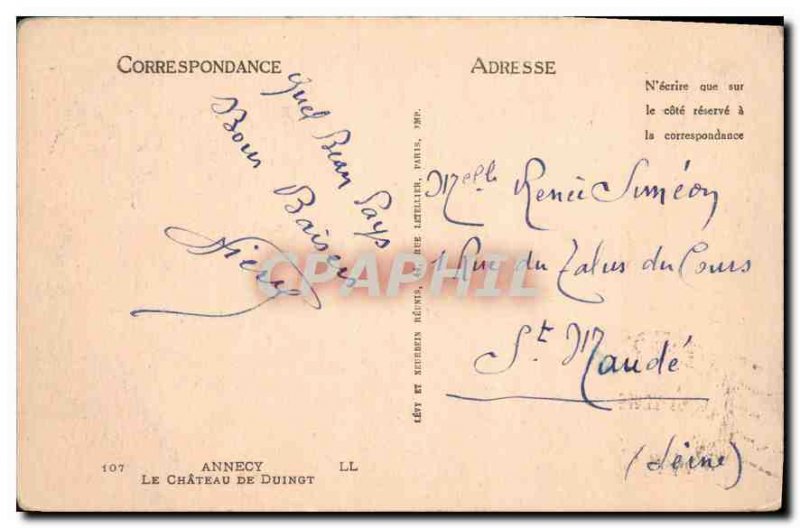 CORRESPONDANCE
Quel Beau Pays
Bons Baisers
ADRESSE
N'écrire que sur
le côté réservé à
la correspondance
Melle Renée Siméon
1 Rue du Talus du Cours
St Mandé
(Seine)
LÉVY ET NEURDEIN RÉUNIS, 44, RUE LETELLIER, PARIS, IMP.
107 ANNECY LL
LE CHÂTEAU DE DUINGT
CPAPHIL